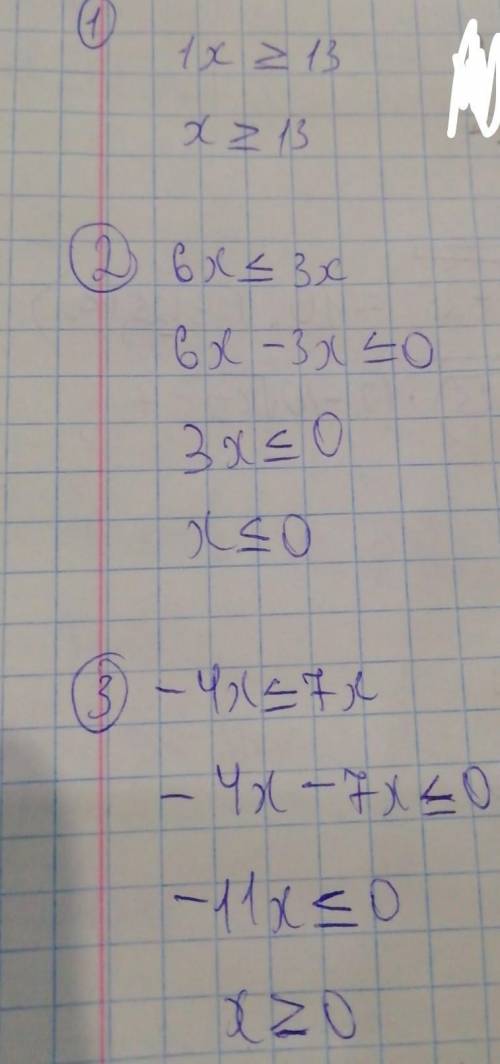 1
1x ≥ 13
x ≥ 13
2 6x ≤ 3x
6x - 3x ≤ 0
3x ≤ 0
x ≤ 0
3 - 4x ≤ 7x
- 4x - 7x ≤ 0
- 11x ≤ 0
x ≥ 0